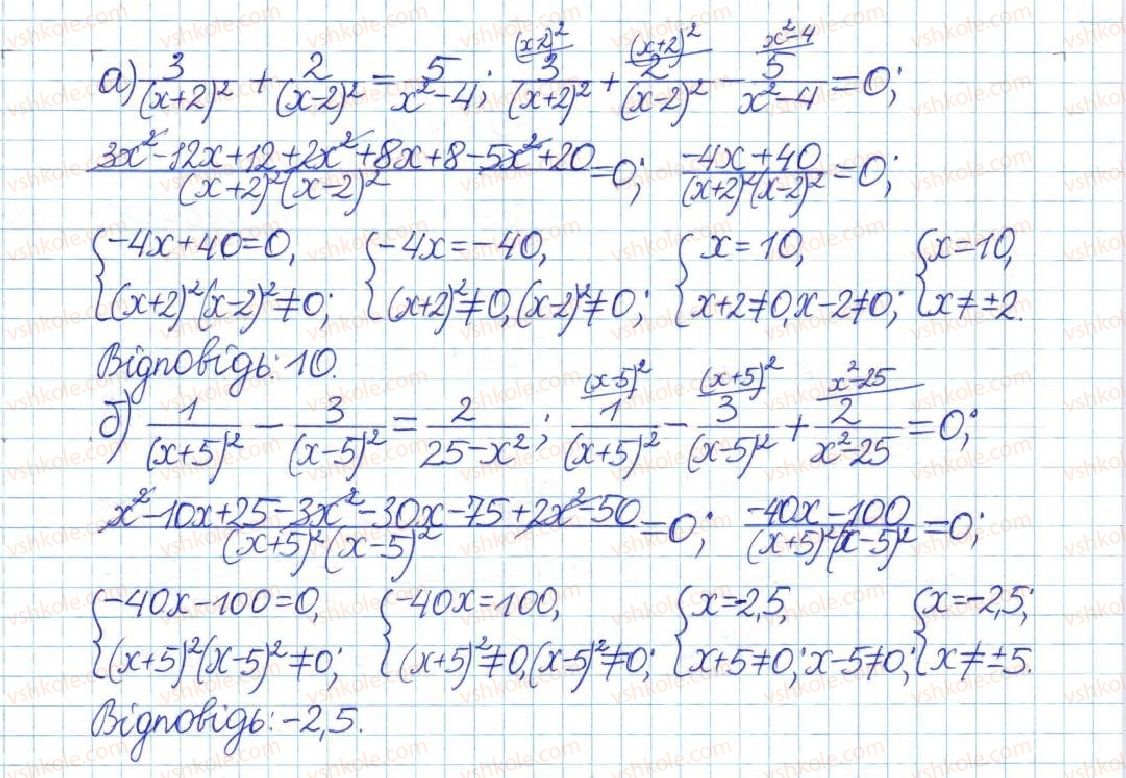 а) 3/(x+2)² + 2/(x-2)² = 5/(x²-4); (x-2)²/ 3/(x+2)² + (x+2)²/ 2/(x-2)² - x²-4/ 5/(x²-4) = 0;
(3x²-12x+12+2x²+8x+8-5x²+20)/((x+2)²(x-2)²) = 0; (-4x+40)/((x+2)²(x-2)²) = 0;
{-4x+40=0, (x+2)²(x-2)²≠0; {-4x=-40, (x+2)²≠0, (x-2)²≠0; {x=10, x+2≠0, x-2≠0; {x=10, x≠±2.
Відповідь: 10.
б) 1/(x+5)² - 3/(x-5)² = 2/(25-x²); (x-5)²/ 1/(x+5)² - (x+5)²/ 3/(x-5)² + x²-25/ 2/(x²-25) = 0;
(x²-10x+25-3x²-30x-75+2x²-50)/((x+5)²(x-5)²) = 0; (-40x-100)/((x+5)²(x-5)²) = 0;
{-40x-100=0, (x+5)²(x-5)²≠0; {-40x=100, (x+5)²≠0, (x-5)²≠0; {x=-2,5, x+5≠0; x-5≠0; {x=-2,5; x≠±5.
Відповідь: -2,5.
vshkole.com